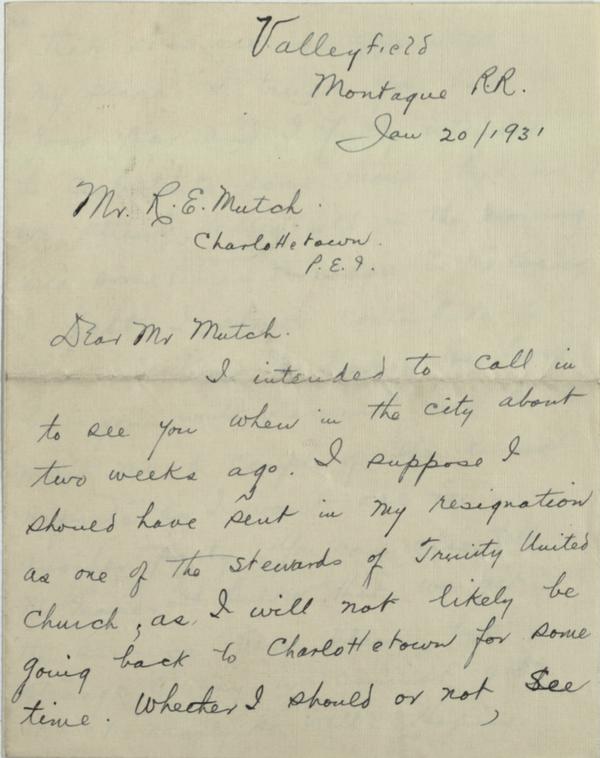 Valleyfield
Montague R.R.
Jan 20/1931
Mr. R. E. Mutch.
Charlottetown.
P.E.I.
Dear Mr Mutch.
I intended to call in
to see you when in the city about
two weeks ago. I suppose I
should have sent in my resignation
as one of the Stewards of Trinity United
Church; as I will not likely be
going back to Charlottetown for some
time. Whether I should or not, See